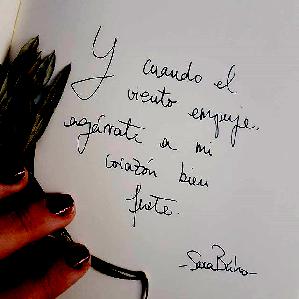 Y cuando el
viento empuje..
agárrati a mi
corazón bien
fuerte.